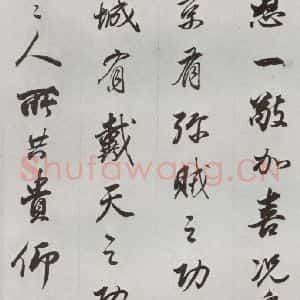 一敬加喜况
京有弥賊之功
城有戴天之功
人所共貴仰
Shufawang.CN